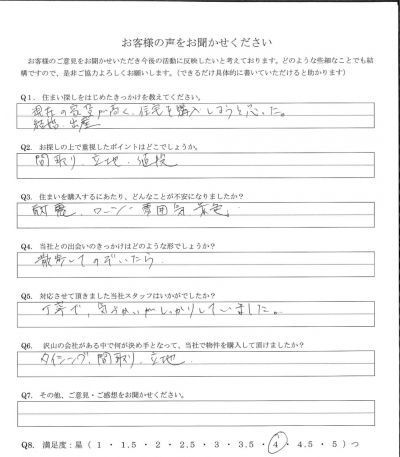 お客様の声をお聞かせください
お客様のご意見をお聞かせいただき今後の活動に反映したいと考えております。どのような些細なことでも結
構ですので、是非ご協力よろしくお願いします。(できるだけ具体的に書いていただけると助かります)
Q1. 住まい探しをはじめたきっかけを教えてください。
現在の家賃が高く、住宅を購入しようと思った。
結婚、出産
Q2. お探しの上で重視したポイントはどこでしょうか。
間取り、立地、値段
Q3. 住まいを購入するにあたり、どんなことが不安になりましたか?
耐震、ローン、雰囲気
Q4. 当社との出会いのきっかけはどのような形でしょうか?
散歩してのぞいたら
Q5. 対応させて頂きました当社スタッフはいかがでしたか?
丁寧で、気づかいがしっかりしていました。
Q6. 沢山の会社がある中で何が決め手となって、当社で物件を購入して頂けましたか?
タイミング、間取り、立地
Q7. その他、ご意見・ご感想をお聞かせください。
Q8. 満足度:星( 1 ・ 1.5 ・ 2 ・ 2.5 ・ 3 ・ 3.5 ・ 4 ・ 4.5 ・ 5 )つ